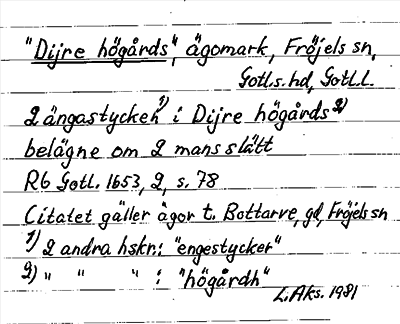 "Dijre högårds", ägomark, Fröjels sn,
Gotl.s. hd, Gotl.l.
2 ängastycken 1) i Dijre högårds 2)
belägne om 2 mans slätt
Rb Gotl. 1653, 2, s. 78
Citatet gäller ägor t. Bottarve, gd, Fröjels sn
1) 2 andra hskr: "engestycker"
2) " " " : "högårdh"
L. Aks. 1981